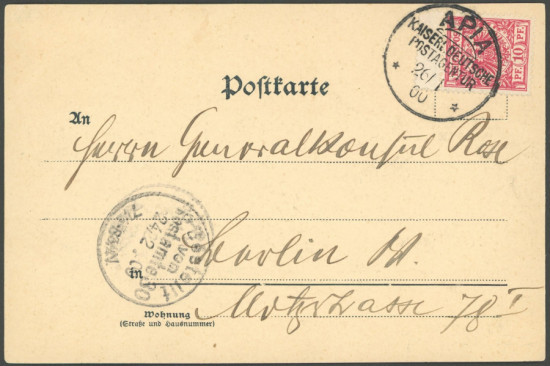 APIA
KAISERL. DEUTSCHE
POSTAGENTUR
26/1
00
10 PF. 10 PF.
Postkarte
An
Herrn Generalkonsul Rose
Bestellt
vom
Postamte 30
24/2 00
in
Berlin W.
Motzstrasse 78 I
Wohnung
(Straße und Hausnummer)